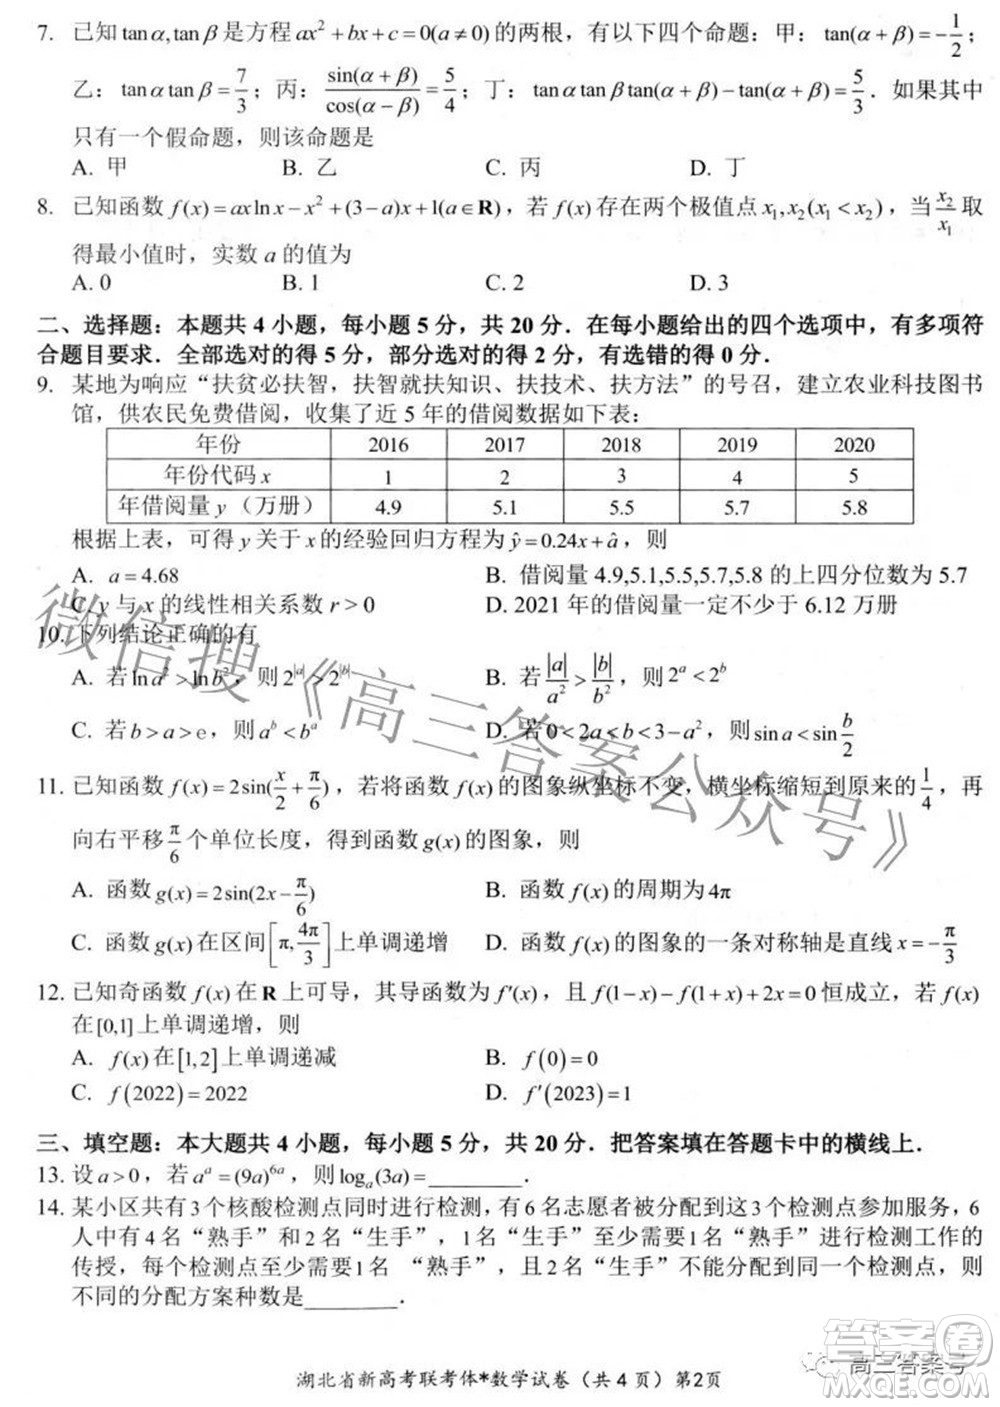 7. 已知 tan α, tan β 是方程 ax² + bx + c = 0(a ≠ 0) 的两根，有以下四个命题：甲：tan(α + β) = −1/2；
乙：tan α tan β = 7/3；丙：sin(α + β)/cos(α − β) = 5/4；丁：tan α tan β tan(α + β) − tan(α + β) = 5/3．如果其中
只有一个假命题，则该命题是
A. 甲 B. 乙 C. 丙 D. 丁
8. 已知函数 f(x) = ax ln x − x² + (3 − a)x + 1(a ∈ R)，若 f(x) 存在两个极值点 x₁, x₂(x₁ < x₂)，当 x₂/x₁ 取
得最小值时，实数 a 的值为
A. 0 B. 1 C. 2 D. 3
二、选择题：本题共 4 小题，每小题 5 分，共 20 分．在每小题给出的四个选项中，有多项符
合题目要求．全部选对的得 5 分，部分选对的得 2 分，有选错的得 0 分．
9. 某地为响应“扶贫必扶智，扶智就扶知识、扶技术、扶方法”的号召，建立农业科技图书
馆，供农民免费借阅，收集了近 5 年的借阅数据如下表：
年份 2016 2017 2018 2019 2020
年份代码 x 1 2 3 4 5
年借阅量 y（万册） 4.9 5.1 5.5 5.7 5.8
根据上表，可得 y 关于 x 的经验回归方程为 ŷ = 0.24x + â，则
A. a = 4.68 B. 借阅量 4.9,5.1,5.5,5.7,5.8 的上四分位数为 5.7
C. y 与 x 的线性相关系数 r > 0 D. 2021 年的借阅量一定不少于 6.12 万册
10. 下列结论正确的有
A. 若 ln a² > ln b²，则 2^|a| > 2^|b| B. 若 |a|/a² > |b|/b²，则 2^a < 2^b
C. 若 b > a > e，则 a^b < b^a D. 若 0 < 2a < b < 3 − a²，则 sin a < sin b/2
11. 已知函数 f(x) = 2sin(x/2 + π/6)，若将函数 f(x) 的图象纵坐标不变，横坐标缩短到原来的 1/4，再
向右平移 π/6 个单位长度，得到函数 g(x) 的图象，则
A. 函数 g(x) = 2sin(2x − π/6) B. 函数 f(x) 的周期为 4π
C. 函数 g(x) 在区间 [π, 4π/3] 上单调递增 D. 函数 f(x) 的图象的一条对称轴是直线 x = −π/3
12. 已知奇函数 f(x) 在 R 上可导，其导函数为 f′(x)，且 f(1−x) − f(1+x) + 2x = 0 恒成立，若 f(x)
在 [0,1] 上单调递增，则
A. f(x) 在 [1,2] 上单调递减 B. f(0) = 0
C. f(2022) = 2022 D. f′(2023) = 1
三、填空题：本大题共 4 小题，每小题 5 分，共 20 分．把答案填在答题卡中的横线上．
13. 设 a > 0，若 a^a = (9a)^6a，则 log_a(3a) = ________．
14. 某小区共有 3 个核酸检测点同时进行检测，有 6 名志愿者被分配到这 3 个检测点参加服务，6
人中有 4 名“熟手”和 2 名“生手”，1 名“生手”至少需要 1 名“熟手”进行检测工作的
传授，每个检测点至少需要 1 名 “熟手”，且 2 名“生手”不能分配到同一个检测点，则
不同的分配方案种数是________．
湖北省新高考联考体*数学试卷（共 4 页）第2页
微信搜《高三答案公众号》
高三答案号
答案圈
MXQE.COM